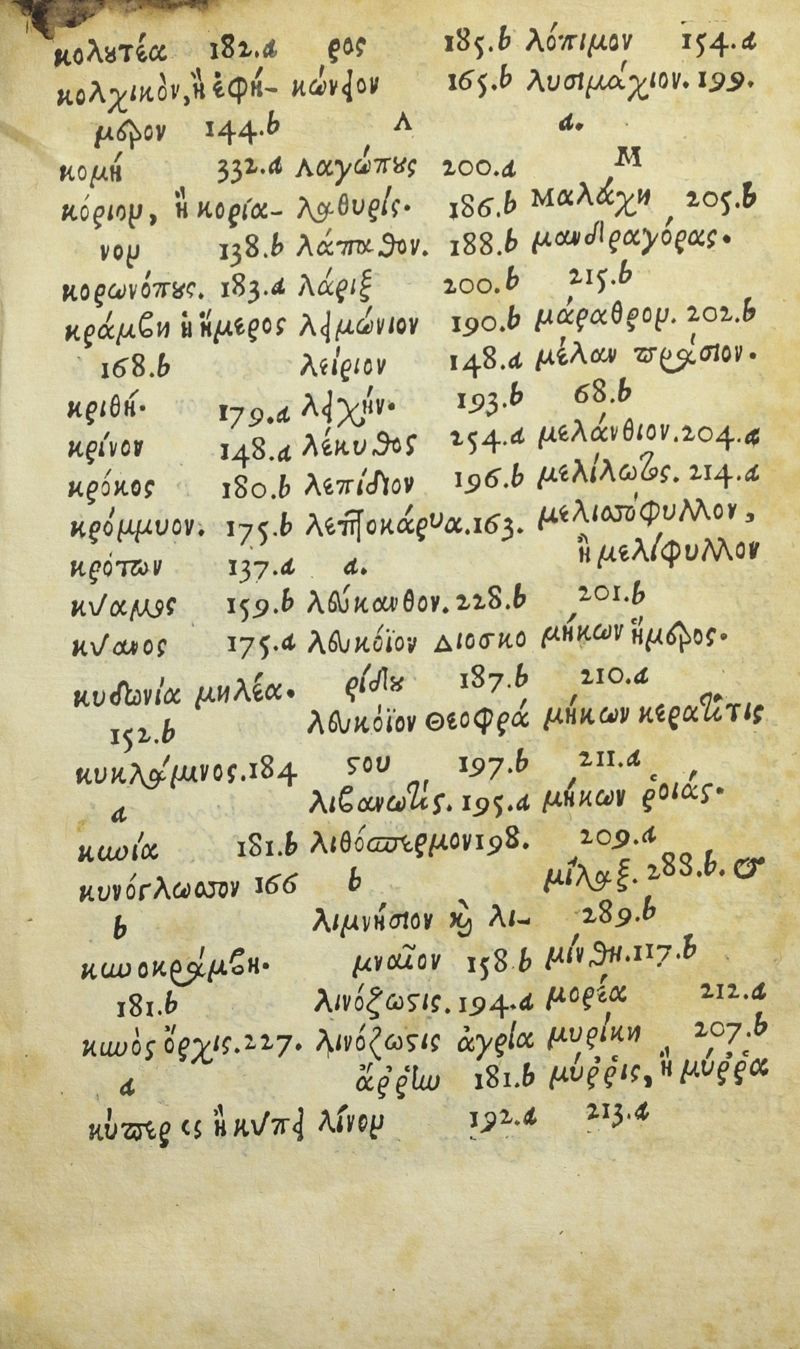 κολȣτέα 182.a
κολχικὸν, ἢ ἐφή-
μερον 144.b
κομή 332.a
κόριον, ἢ κορία-
νον 138.b
κορωνόπȣς. 183.a
κράμβη ἡ ἥμερος
168.b
κριθή. 179.a
κρίνον 148.a
κρόκος 180.b
κρόμμυον. 175.b
κρότων 137.a
κύαμος 159.b
κύανος 175.a
κυδωνία μηλέα.
152.b
κυκλάμινος. 184
a
κωνία 181.b
κυνόγλωσσον 166
b
κυνοκράμβη.
181.b
κυνὸς ὄρχις. 227.
a
κύπερος ἢ κύπει
ρος 185.b
κώνειον 165.b
Λ
λαγώπȣς 200.a
λαθυρίς. 186.b
λάπαθον. 188.b
λάριξ 200.b
λειμώνιον 190.b
λείριον 148.a
λειχήν. 193.b
λέκυθος 254.a
λεπίδιον 196.b
λεπτοκάρυα. 163.
a.
λευκανθον. 228.b
λευκόϊον Διοσκο
ρίδȣ 187.b
λευκόϊον Θεοφρά
στου 197.b
λιβανωτίς. 195.a
λιθόσπερμον 198.
b
λιμνήσιον καὶ λι-
μναῖον 158 b
λινόζωστις. 194.a
λινόζωστις ἀγρία
ἄῤῥην 181.b
λίνον 192.a
λόπιμον 154.a
λυσιμάχιον. 199.
a.
Μ
Μαλάχη 205.b
μανδραγόρας.
215.b
μάραθρον. 202.b
μέλαν πράσιον.
68.b
μελάνθιον. 204.a
μελίλωτος. 214.a
μελισσόφυλλον,
ἢ μελίφυλλον
201.b
μήκων ἥμερος.
210.a
μήκων κερατῖτις
211.a
μήκων ροιάς.
209.a
μῖλαξ. 288.b. &
289.b
μίνθη. 117.b
μορέα 212.a
μυρίκη 207.b
μύῤῥις, ἢ μύῤῥα
213.a